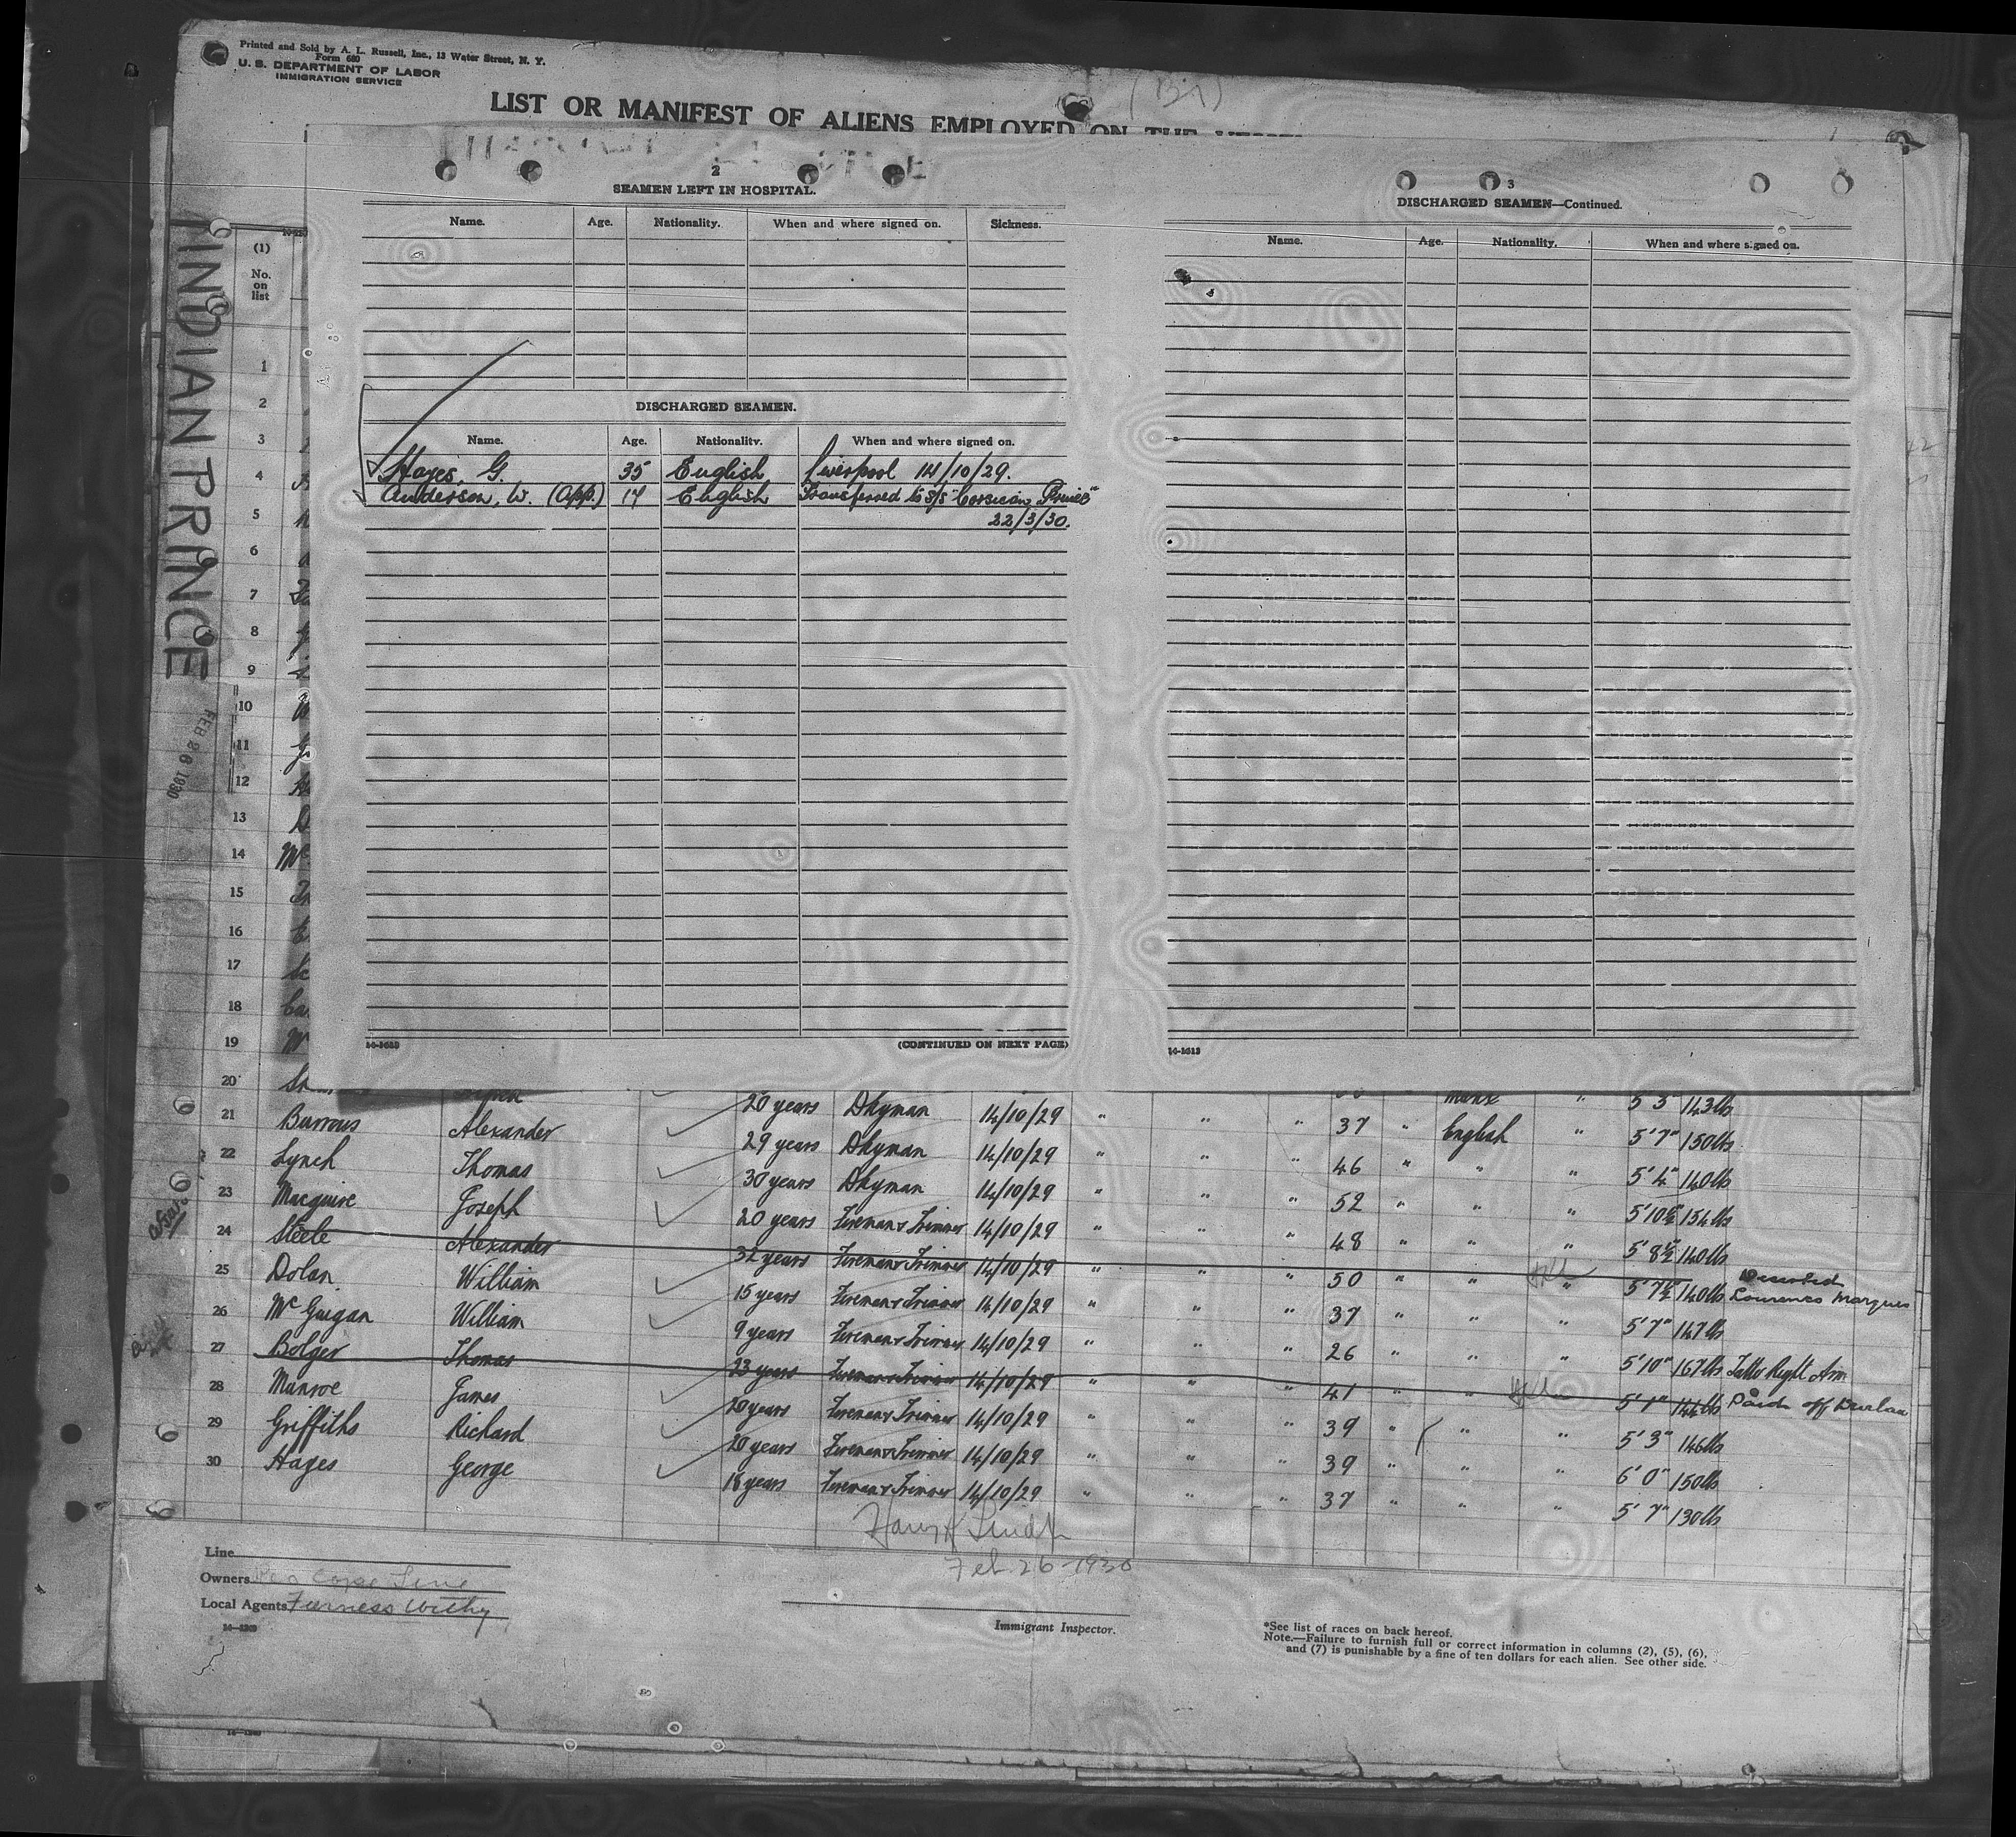 Printed and Sold by A. L. Russell, Inc., 13 Water Street, N. Y.
Form 680
U. S. DEPARTMENT OF LABOR
IMMIGRATION SERVICE
LIST OR MANIFEST OF ALIENS EMPLOYED ON THE
INDIAN PRINCE
FEB 26 1930
(1)
No.
on
list
2
SEAMEN LEFT IN HOSPITAL.
Name. Age. Nationality. When and where signed on. Sickness.
DISCHARGED SEAMEN.
Name. Age. Nationality. When and where signed on.
Hayes, G. 35 English Liverpool 14/10/29.
Anderson, W. (App.) 17 English Transferred to S/S "Corsican Prince"
22/3/30.
(CONTINUED ON NEXT PAGE)
3
DISCHARGED SEAMEN—Continued.
Name. Age. Nationality. When and where signed on.
14-1613
1
2
3
4
5
6
7
8
9
10
11
12
13
14
15
16
17
18
19
20 Manx " 5'3" 143lbs
21 Burrows Alexander 20 years Dkyman 14/10/29 " " " 37 " English " 5'7" 150lbs
22 Lynch Thomas 29 years Dkyman 14/10/29 " " " 46 " " " 5'4" 140lbs
23 Macguire Joseph 30 years Dkyman 14/10/29 " " " 52 " " " 5'10½" 154lbs
24 Steele Alexander 20 years Fireman & Trimmer 14/10/29 " " " 48 " " " 5'8½" 140lbs
25 Dolan William 32 years Fireman & Trimmer 14/10/29 " " " 50 " " " 5'7½" 140lbs Deserted Lourenco Marques
26 McGuigan William 15 years Fireman & Trimmer 14/10/29 " " " 37 " " " 5'7" 147lbs
27 Bolger Thomas 9 years Fireman & Trimmer 14/10/29 " " " 26 " " " 5'10" 167lbs Tatto Right Arm
28 Munroe James 23 years Fireman & Trimmer 14/10/29 " " " 41 " " " 5'1" 144lbs Paid off Durban
29 Griffiths Richard 20 years Fireman & Trimmer 14/10/29 " " " 39 " " " 5'3" 146lbs
30 Hayes George 20 years Fireman & Trimmer 14/10/29 " " " 39 " " " 6'0" 150lbs
18 years Fireman & Trimmer 14/10/29 " " " 37 " " " 5'7" 130lbs
Feb. 26-1930
Line
Owners
Local Agents Furness Withy
Immigrant Inspector.
*See list of races on back hereof.
Note.—Failure to furnish full or correct information in columns (2), (5), (6),
and (7) is punishable by a fine of ten dollars for each alien. See other side.